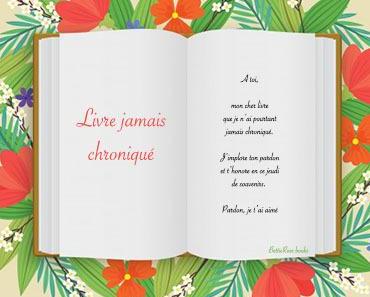 Livre jamais
chroniqué
A toi,
mon cher livre
que je n'ai pourtant
jamais chroniqué.
J'implore ton pardon
et t'honore en ce jeudi
de souvenirs.
Pardon, je t'ai aimé
BettieRose books